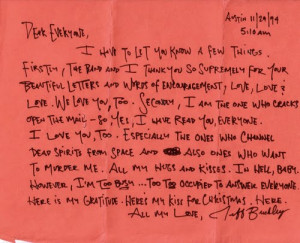 Austin 11/20/94
5:10am
Dear Everyone,
I have to let you know a few things.
Firstly, the band and I thank you so supremely for your
beautiful letters and words of encouragement, love, love &
love. We love you, too. Secondly, I am the one who cracks
open the mail - so yes, I have read you, everyone.
I love you, too. Especially the ones who channel
dead spirits from space and also ones who want
to murder me. All my hugs and kisses. In hell, baby.
However, I'm too busy... too occupied to answer everyone.
Here is my gratitude. Here's my kiss for Christmas. Here.
All my love, Jeff Buckley